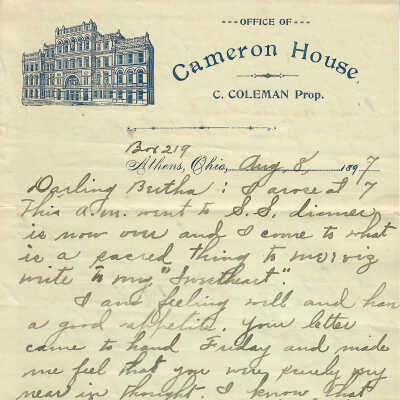 OFFICE OF
Cameron House,
C. COLEMAN Prop.
Box 219
Athens, Ohio, Aug, 8, 1897
Darling Bertha: I arose at 7
this a.m. went to S.S. dinner
is now over and I come to what
is a sacred thing to me viz
write to my "Sweetheart".
I am feeling well and have
a good appetite. Your letter
came to hand Friday and made
me feel that you were surely very
near in thought. I know that